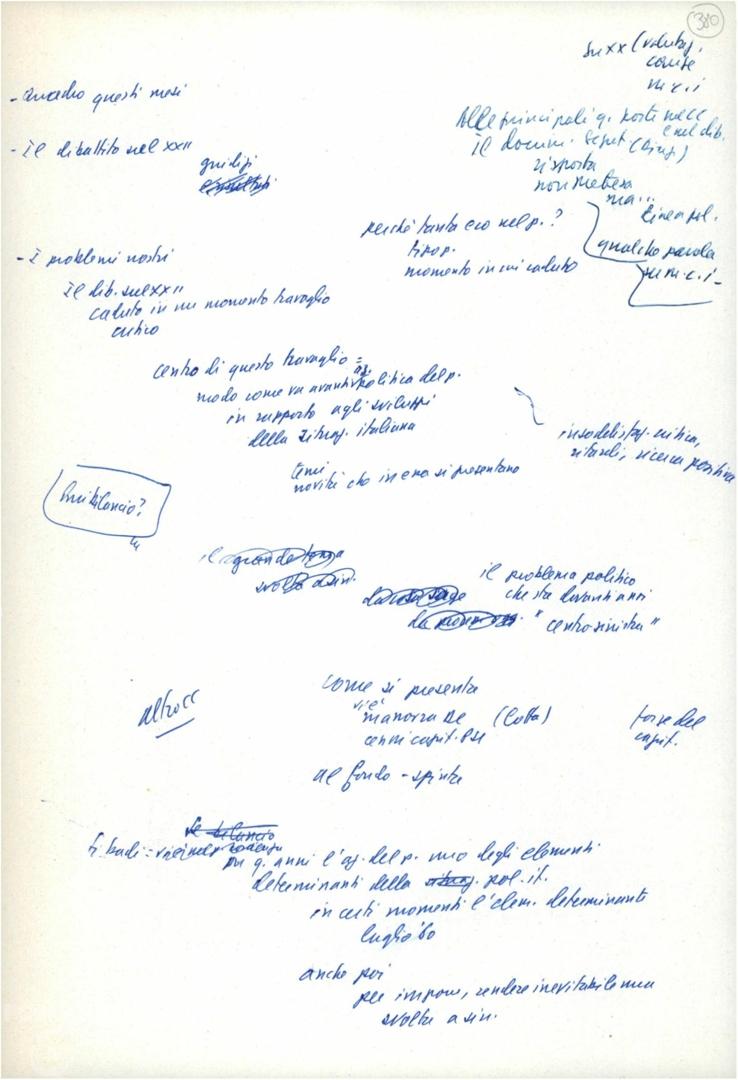 380
su xx (valutaz.
m.c.i
- quadro questi mesi
Alle principali q. poste nel CC
e nel dib.
- Il dibattito sul XXII
il docum. Segret. (Ding)
giudizi
risposta
non rietersa
ma...
linea pol.
perché tanta eco nel p.?
tipo p.
qualche parola
momento in cui caduto
su m.c.i -
- I problemi nostri
Il dib. sul XXII
caduto in un momento travaglio
critico
centro di questo travaglio =
modo come va avanti politica del p.
in rapporto agli sviluppi
della situaz. italiana
insodisfaz. critica,
ritardi, ricerca positiva
temi,
novità che in essa si presentano
Un bilancio?
il grande tema
svolta a sin.
il problema politico
che sta davanti a noi
da
da "centro sinistra"
altro CC
come si presenta
vi è
manovra DC (Colta)
forse del
capit.
cenni capit. PSI
al fondo - spinte
se bilancio
si badi =
in q. anni l'az. del p. uno degli elementi
determinanti della situaz. pol. it.
in certi momenti l'elem. determinante
luglio '60
anche poi
per imporre, rendere inevitabile una
svolta a sin.